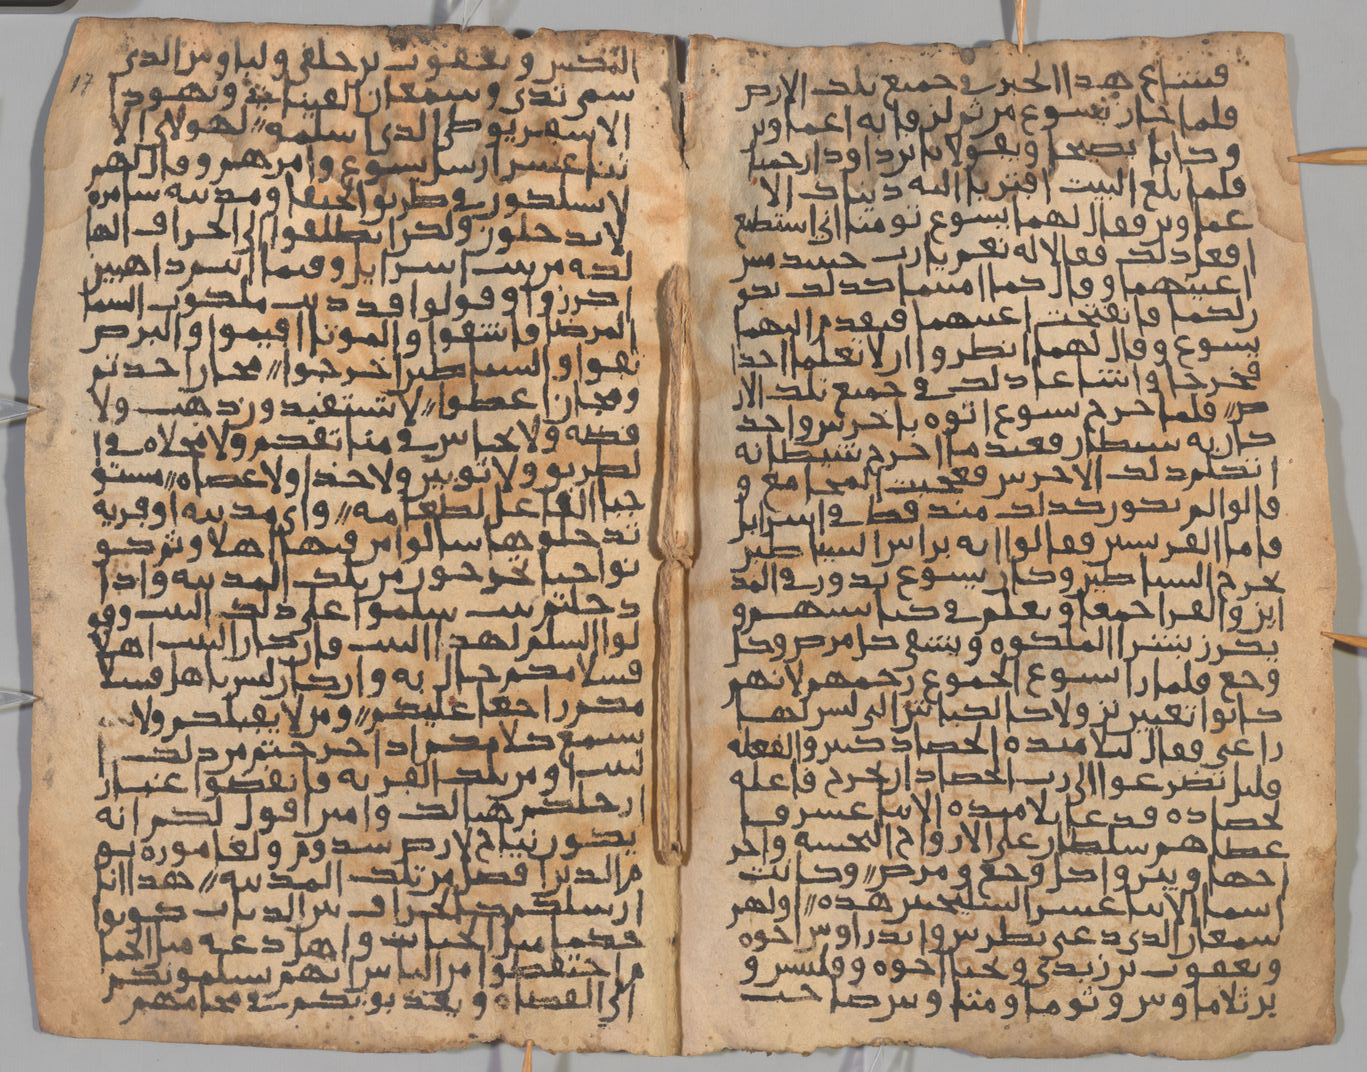 فشاع هذا الخبر في جميع تلك الارض
فلما جاز يسوع من ثم لزقا به اعماوين
وكانا يصيحا ويقولا يا بن داود ارحمنا
فلما بلغ البيت اقتربا اليه ذينك الا
عماوين فقال لهما يسوع تومنا اني استطيع
افعل ذلك فقالا له نعم يا رب حينيذ مس
اعينهما وقال كما امنتما كذلك يكو
ن لكما فانفتحت اعينهما فتقدم اليهما
يسوع وقال لهما انظروا الا يعلما احد
فخرجا واشاعا ذلك في جميع تلك الار
ض فلما خرج يسوع اتوه باخرس واحد
كان به شيطان فعندما اخرج شيطانه
تكلم ذلك الاخرس فعجبت المجامع و
قالوا لم يكون كذلك منذ قط في اسرايل
فاما الفريسين فقالوا انه براس الشياطين
يخرج الشياطين وكان يسوع يدور في المد
اين والقرا جميعا ويعلم في كنايسهم و
يكرز ببشرا الملكوه ويشفي كل مرض وكل
وجع فلما را يسوع الجموع رحمهم لانهم
كانوا تعبين نزولا كالكباش التي ليس لها
راعي فقال لتلاميذه الحصاد كثير والفعله
قليل تضرعوا الي رب الحصاد ان يخرج فاعله
لحصاده فدعا تلاميذه الاثنا عشر فا
عطاهم سلطان علي الارواح النجسه واخر
اجها ويبروا كل وجع ومرض وكانت
اسما الاثنا عشر السليحين هذه اولهم
سمعان الذي دعي بطرس واندراوس اخوه
ويعقوب بن زبدي ويحيا اخوه وفليبس و
برتلاماوس وتوما ومتا وس صاحب
17
المكس ويعقوب بن حلفي ولباوس الذي
سمي تدي وسمعان القينانيه ويهودا
الاسخريوطي الذي اسلمه لهولاي الا
ثنا عشر ارسل يسوع وامرهم وقال لهم
لا تسلكون في طريق الحنفا ومدينه سامره
لا تدخلون ولكن انطلقوا الي الخراف الها
لكه من بيت اسرايل وفيما انتم ذاهبين
اكرزوا وقولوا قد دنت ملكوت السما
المرضا فاشفوا والموتا اقيموا والبرص
نقوا والشياطين اخرجوا مجان اخذتم
ومجان اعطوا لا تستفيدون ذهب ولا
فضه ولا نحاس في مناطقكم ولا مخلاه في ا
لطريق ولا ثوبين ولا حذا ولا عصاه مستو
جبا الفاعل لطعامه واي مدينه او قريه
تدخلوها سالوا من فيها اهلا وثم كو
نوا حتا تخرجون من تلك المدينه واذا
دخلتم بيت سلموا علي ذلك البيت وقو
لوا السلم لهذا البيت فان كان البيت اهلا
فسلامكم حال به وان كان ليس باهل فسلا
مكم راجعا عليكم ومن لا يقبلكم ولا
يسمع كلامكم اذا خرجتم من ذلك ا
لبيت او من تلك القريه فانفضوا غبار
ارجلكم هنالك وامين اقول لكم انه
يكون نياح لارض سدوم ولغاموره يو
م الدين افضل من تلك المدينه هذا انا
ارسلكم كالخراف بين الذياب كونوا
حكما مثل الحيات واهل دعه مثل الحما
م احتفظوا من الناس انهم يسلمونكم
الي القضاه ويعذبونكم في مجامعهم